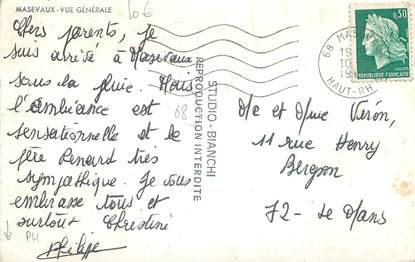 MASEVAUX - VUE GÉNÉRALE
10€
Chers parents, je
suis arrêté à Masevaux
sous la pluie. Mais
l'ambiance est
sensationnelle et le
père Renard très
sympathique. Je vous
embrasse tous et
surtout Christine
Philippe
PLI
68
STUDIO-BIANCHI
REPRODUCTION INTERDITE
68 MAS
19
10
19
HAUT-RH
0,30
RÉPUBLIQUE FRANÇAISE
M et Mme Véron,
11 rue Henry
Bergson
72 - Le Mans